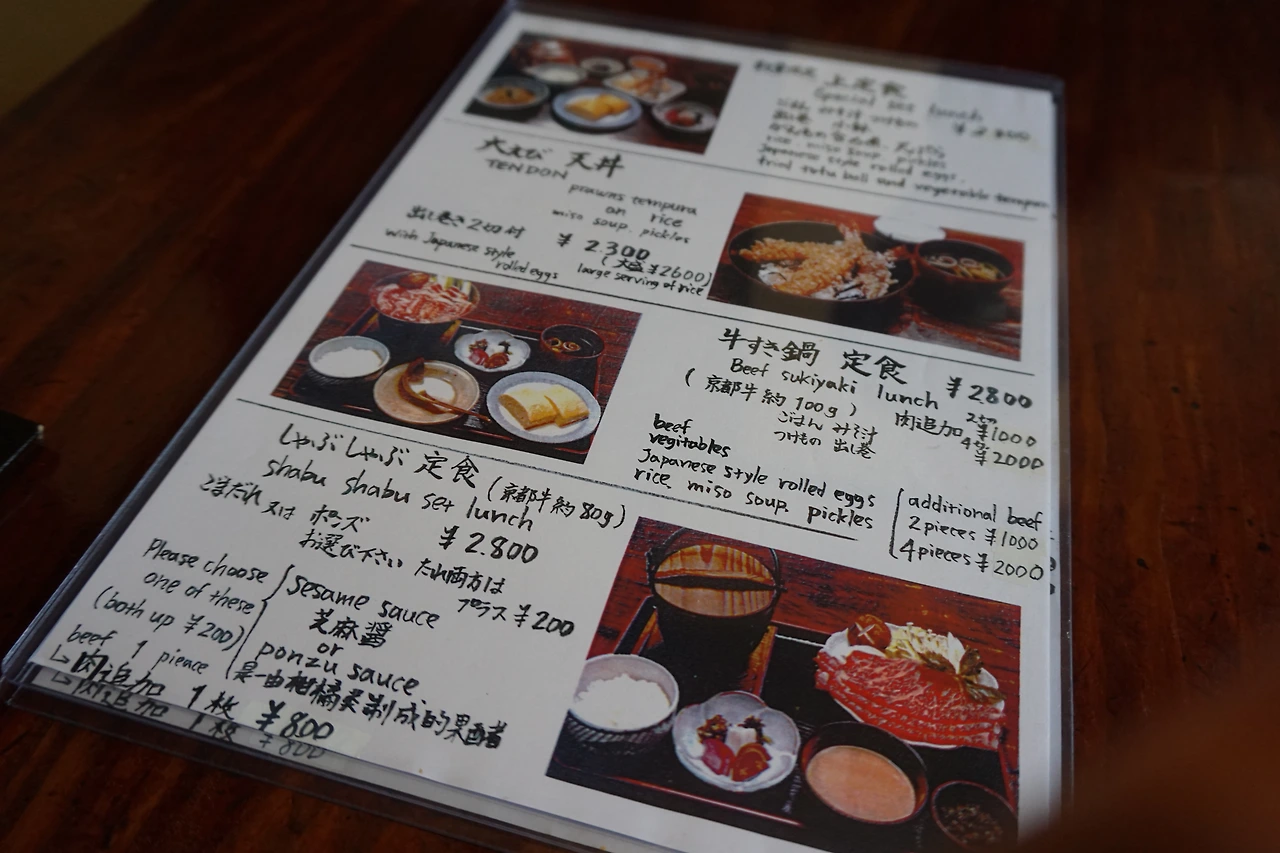 上定食
Special set lunch
rice, miso soup, pickles
Japanese style rolled eggs.
fried tofu ball and vegetable tempura
大えび 天丼
TENDON
prawns tempura
on rice
miso soup, pickles
出し巻き2切付
with Japanese style
rolled eggs
¥ 2.300
(大盛 ¥2600)
large serving of rice
牛すき鍋 定食
Beef sukiyaki lunch ¥2800
(京都牛約100g)
肉追加 2切 ¥1000
4切 ¥2000
ごはん みそ汁
つけもの 出し巻
beef
vegitables
Japanese style rolled eggs
rice. miso soup. pickles
additional beef
2pieces ¥1000
4pieces ¥2000
しゃぶしゃぶ 定食 (京都牛約80g)
shabu shabu set lunch
¥ 2.800
ごまだれ 又は ポンズ
お選び下さい たれ両方は
プラス ¥200
Please choose
one of these
(both up ¥200)
sesame sauce
芝麻醤
or
ponzu sauce
是一由柑橘类制成的果酱
beef 1 pieace
↳肉追加 1枚 ¥800